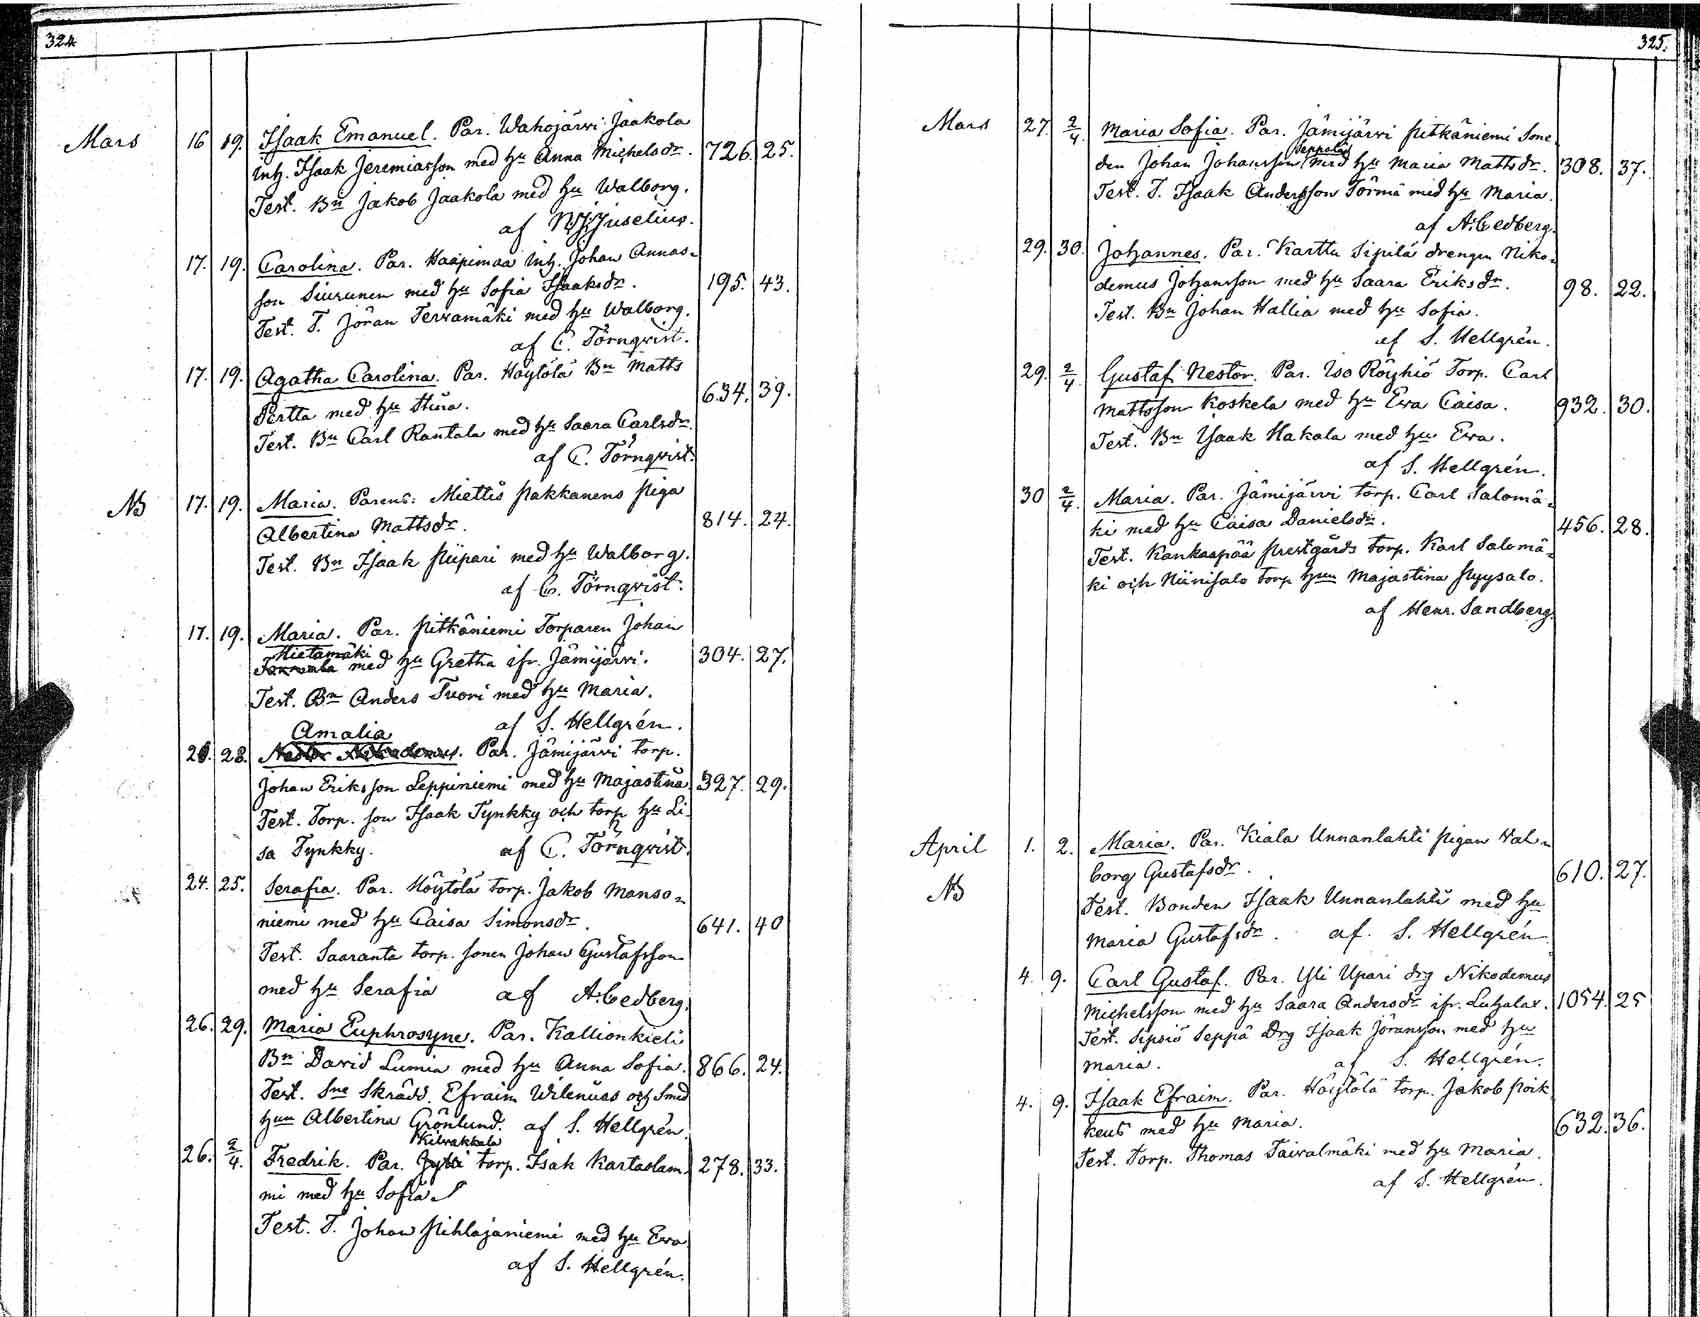 324
Mars 16 19. Isaak Emanuel. Par. Wahojärvi Jaakola
inh. Isaak Jeremiasson med hu Anna Michelsdr. 726. 25.
Test. Bn Jakob Jaakola med hu Walborg.
af N. J. Juselius.
17. 19. Carolina. Par. Haapimaa inh. Johan Annas-
son Siurunen med hu Sofia Isaaksdr. 195. 43.
Test. T. Jöran Terramäki med hu Walborg.
af C. Törnqvist.
17. 19. Agatha Carolina. Par. Höytölä Bn Matts
Pertta med hu Stina. 634. 39.
Test. Bn Carl Rantala med hu Saara Carlsdr.
af C. Törnqvist.
NB 17. 19. Maria. Parens: Miettis Pakkanens piga
Albertina Mattsdr. 814. 24.
Test. Bn Isaak Piipari med hu Walborg.
af C. Törnqvist.
17. 19. Maria. Par. Pitkäniemi Torparen Johan
Mietamäki
med hu Gretha ifr. Jämijärvi. 304. 27.
Test. Bn Anders Tuori med hu Maria.
af S. Hellgrén.
Amalia
28. Nestor Nikodemus. Par. Jämijärvi torp.
Johan Eriksson Leppiniemi med hu Majastina 327. 29.
Test. Torp. son Isaak Tynkky och torp hu Li-
sa Tynkky. af C. Törnqvist.
24. 25. Serafia. Par. Höytölä torp. Jakob Manso-
niemi med hu Caisa Simonsdr. 641. 40
Test. Saaranta torp. sonen Johan Gustafsson
med hu Serafia af A. Cedberg.
26. 29. Maria Euphrosyne. Par. Kallionkieli
Bn David Lumia med hu Anna Sofia. 866. 24.
Test. Sne Skrädd. Efraim Wilenius och Smed
hun Albertina Grönlund. af S. Hellgrén.
Kilvakkala
26. 2/4. Fredrik. Par. Jylli torp. Isak Kartaslam-
mi med hu Sofia 278. 33.
Test. T. Johan Pihlajaniemi med hu Ewa
af S. Hellgrén.
325.
Mars 27. 2/4. Maria Sofia. Par. Jämijärvi Pitkäniemi Sone-
Seppälä
den Johan Johansson med hu Maria Mattsdr. 308. 37.
Test. T. Isaak Andersson Törmä med hu Maria.
af A. Cedberg.
29. 30. Johannes. Par. Karttu Sipilä drengen Niko-
demus Johansson med hu Saara Eriksdr. 98. 22.
Test. Bn Johan Hallia med hu Sofia.
af S. Hellgrén.
29. 2/4. Gustaf Nestor. Par. Iso Röyhiö Torp. Carl
Mattsson Koskela med hu Ewa Caisa. 932. 30.
Test. Bn Isaak Hakala med hu Ewa.
af S. Hellgrén.
30 2/4. Maria. Par. Jämijärvi torp. Carl Salomä-
ki med hu Caisa Danielsdr. 456. 28.
Test. Kankaapää Prestgårds torp. Karl Salomä-
ki och Niinisalo torp hun Majastina Pyysalo.
af Henr. Sandberg.
April 1. 2. Maria. Par. Kiala Unnanlahti pigan Wal-
borg Gustafsdr. 610. 27.
NB
Test. Bonden Isaak Unnanlahti med hu
Maria Gustafsdr. af. S. Hellgrén
4. 9. Carl Gustaf. Par. Yli Upari drg Nikodemus
Michelsson med hu Saara Andersdr ifr. Luhalax. 1054. 25
Test. Sipsiö Seppä Drg Isaak Jöransson med hu
Maria. af S. Hellgrén.
4. 9. Isaak Efraim. Par. Höytölä torp. Jakob Poik-
keus med hu Maria. 632. 36.
Test. Torp. Thomas Taivalmäki med hu Maria.
af S. Hellgrén.